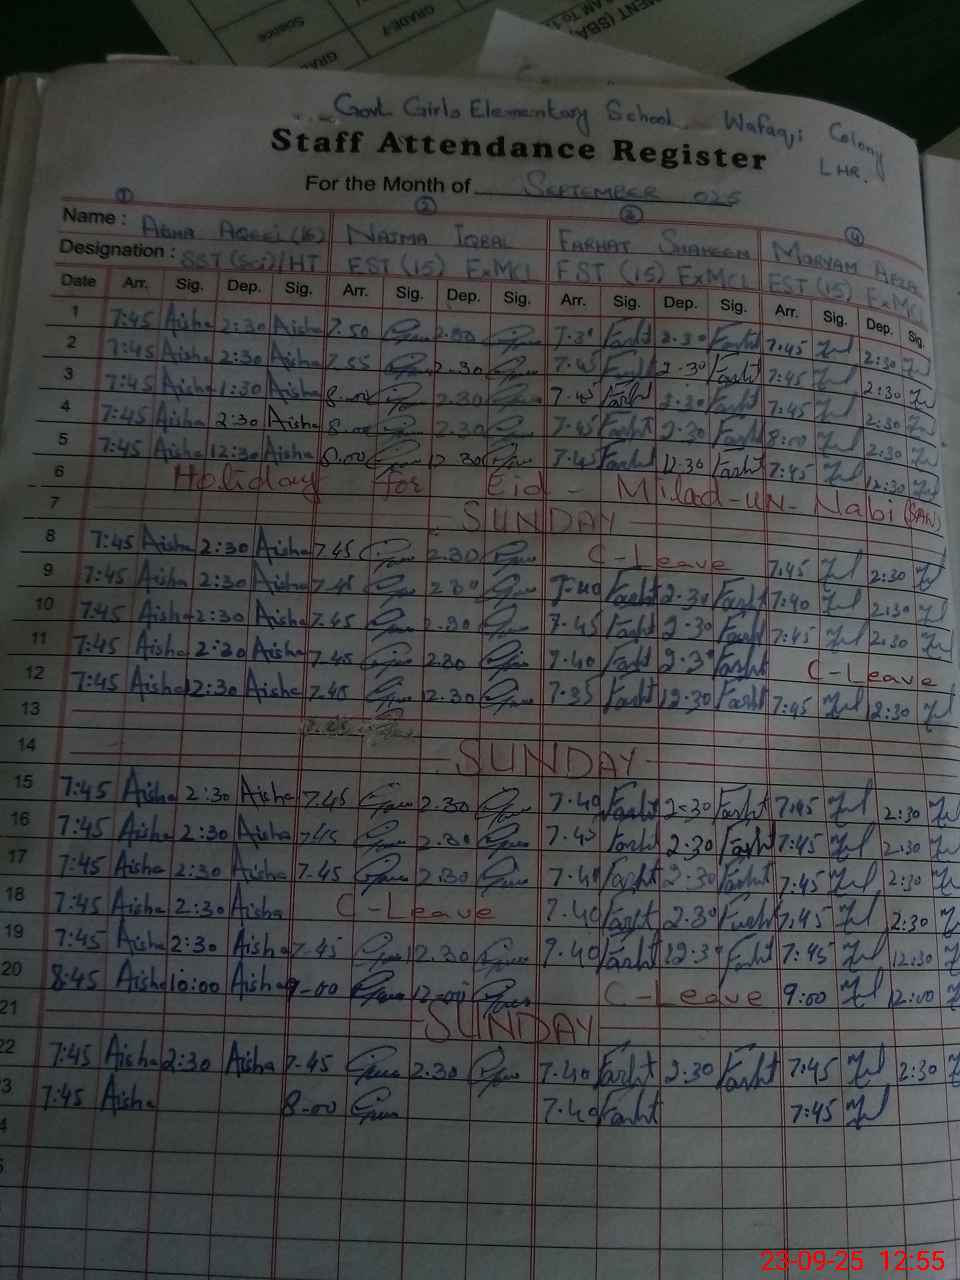 GRADE-I
Science
Govt. Girls Elementary School Wafaqi Colony
LHR.
Staff Attendance Register
For the Month of SEPTEMBER 025
① ② ③ ④
Name : AISHA AQEEL (16) NAJMA IQBAL FARHAT SHAHEEN MARYAM AFZAL
Designation : SST (Sci)/HT EST (15) ExMCL EST (15) ExMCL EST (15) ExMCL
Date Arr. Sig. Dep. Sig. Arr. Sig. Dep. Sig. Arr. Sig. Dep. Sig. Arr. Sig. Dep. Sig.
1 7:45 Aisha 2:30 Aisha 7.50 2.30 7.30 Farht 2.30 Farht 7:45 2:30
2 7:45 Aisha 2:30 Aisha 7.55 2.30 7.45 Farht 2.30 Farht 7:45 2:30
3 7:45 Aisha 1:30 Aisha 8.00 2.30 7.45 Farht 2.30 Farht 7:45 2:30
4 7:45 Aisha 2:30 Aisha 8.00 2.30 7.45 Farht 2.30 Farht 8:00 2:30
5 7:45 Aisha 12:30 Aisha 8.00 12.30 7.45 Farht 12.30 Farht 7:45 12:30
6 Holiday for Eid - Milad-un-Nabi (SAW)
7 SUNDAY
8 7:45 Aisha 2:30 Aisha 7.45 2.30 C-Leave 7:45 2:30
9 7:45 Aisha 2:30 Aisha 7.45 2.30 7.40 Farht 2.30 Farht 7:40 2:30
10 7:45 Aisha 2:30 Aisha 7.45 2.30 7.45 Farht 2.30 Farht 7:45 2:30
11 7:45 Aisha 2:30 Aisha 7.45 2.30 7.40 Farht 2.30 Farht C-Leave
12 7:45 Aisha 12:30 Aisha 7.45 12.30 7.35 Farht 12.30 Farht 7:45 12:30
13
14 SUNDAY
15 7:45 Aisha 2:30 Aisha 7.45 2.30 7.40 Farht 2:30 Farht 7:45 2:30
16 7:45 Aisha 2:30 Aisha 7.45 2.30 7.40 Farht 2.30 Farht 7:45 2:30
17 7:45 Aisha 2:30 Aisha 7.45 2.30 7.40 Farht 2.30 Farht 7:45 2:30
18 7:45 Aisha 2:30 Aisha C-Leave 7.40 Farht 2.30 Farht 7:45 2:30
19 7:45 Aisha 2:30 Aisha 7.45 12.30 7.40 Farht 12:30 Farht 7:45 12:30
20 8:45 Aisha 10:00 Aisha 9-00 12-00 C-Leave 9:00 12:00
21 SUNDAY
22 7:45 Aisha 2:30 Aisha 7.45 2.30 7.40 Farht 2:30 Farht 7:45 2:30
3 7:45 Aisha 8.00 7.40 Farht 7:45
4
5
23-09-25 12:55